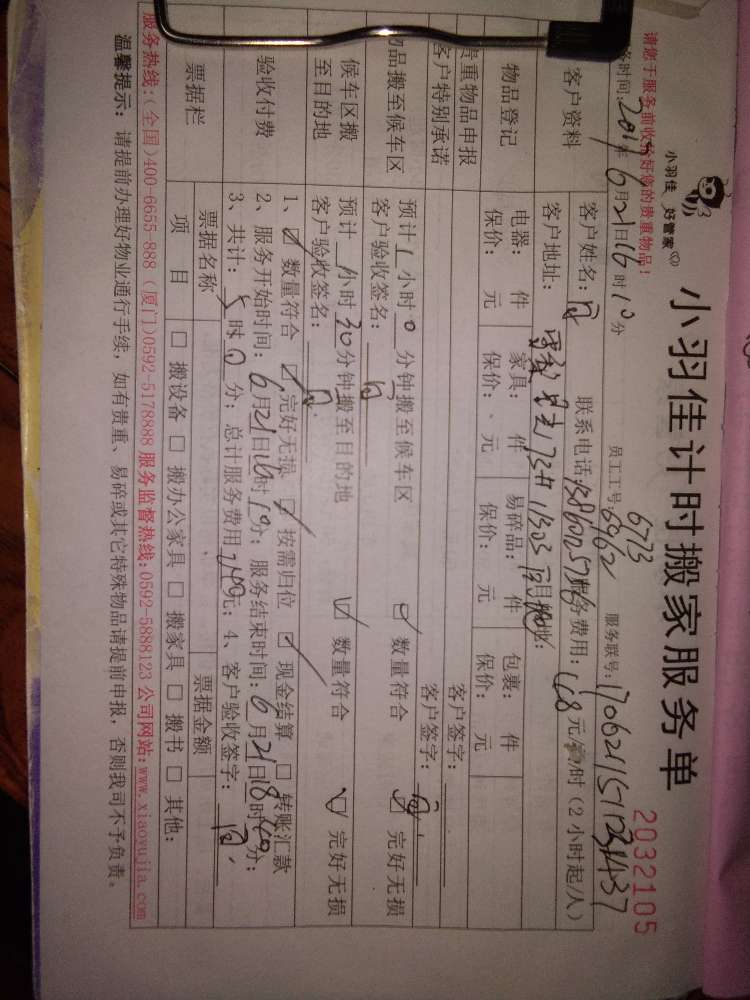 小羽佳 好管家
小羽佳计时搬家服务单
2032105
请您于服务前收拾好您的贵重物品!
时间: 2017年6月21日16时10分 员工工号: 6962 6773 服务联号: 170621151231437
客户资料 客户姓名: 联系电话: 服务费用: 68元/时(2小时起/人)
客户地址: 1303 目的地:
物品登记 电器: 件 家具: 件 易碎品: 件 包裹: 件
保价: 元 保价: 元 保价: 元 保价: 元
贵重物品申报 客户签字:
客户特别承诺 客户签字:
物品搬至候车区 预计1小时0分钟搬至候车区 数量符合 完好无损
客户验收签名:
候车区搬至目的地 预计1小时30分钟搬至目的地 数量符合 完好无损
客户验收签名:
验收付费 1、数量符合 完好无损 按需归位 现金结算 转账汇款
2、服务开始时间: 6月21日16时10分; 服务结束时间: 6月21日18时40分;
3、共计: 时 分; 总计服务费用 元; 4、客户验收签字:
票据栏 票据名称 票据金额
项目 搬设备 搬办公家具 搬家具 搬书 其他:
服务热线:(全国)400-6655-888 (厦门)0592-5178888 服务监督热线:0592-5888123 公司网站:www.xiaoyujia.com
温馨提示: 请提前办理好物业通行手续, 如有贵重、易碎或其它特殊物品请提前申报, 否则我司不予负责。